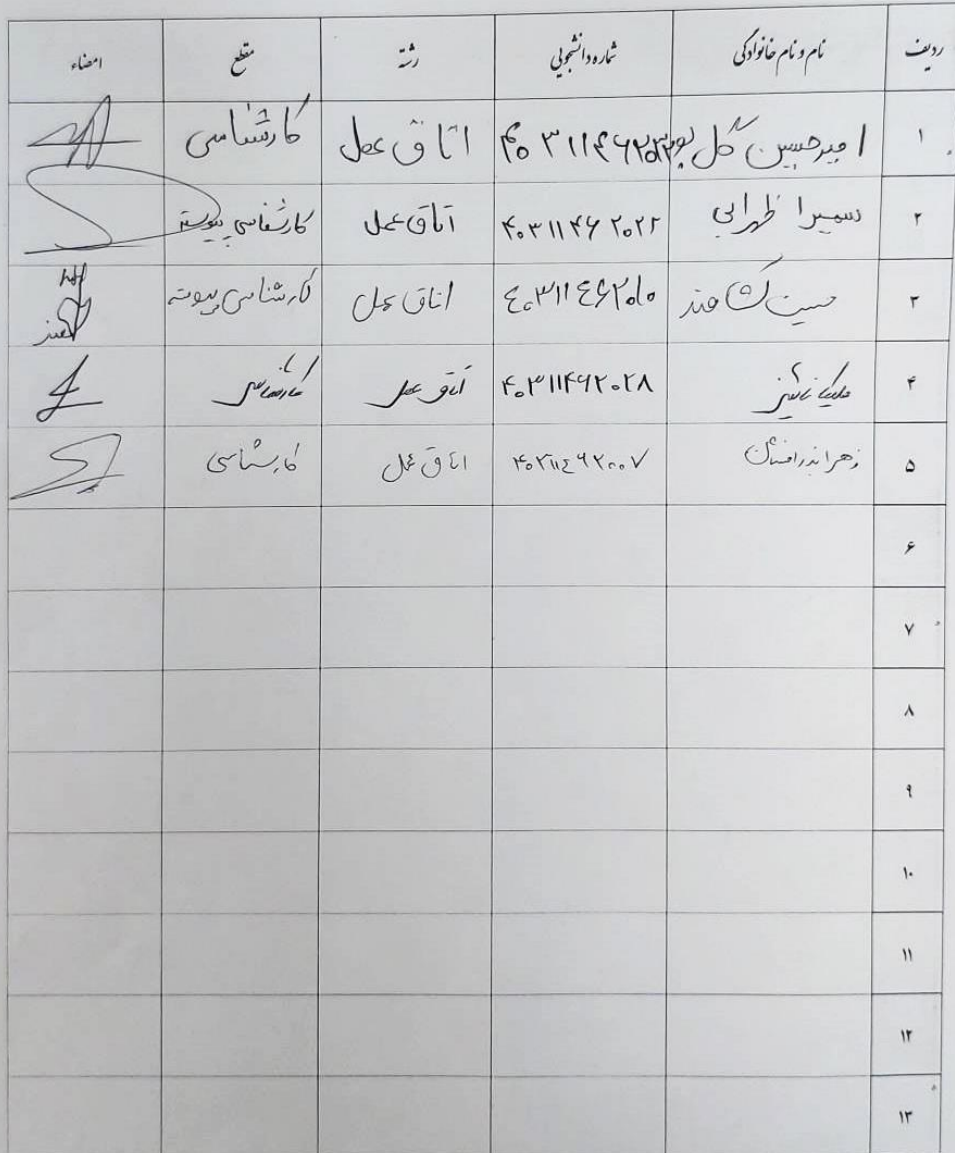 ردیف نام و نام خانوادگی شماره دانشجویی رشته مقطع امضاء
۱ امیرحسین گل پور ۴۰۳۱۱۴۶۲۰۳۲ اتاق عمل کارشناسی
۲ سمیرا ظهرابی ۴۰۳۱۱۴۶۲۰۲۲ اتاق عمل کارشناسی پیوسته
۳ گشامند ۴۰۳۱۱۴۶۲۰۱۰ اتاق عمل کارشناسی پیوسته
۴ ملیکا ۴۰۳۱۱۴۶۲۰۲۸ اتاق عمل کارشناسی
۵ زهرا بذرافشان ۴۰۳۱۱۴۶۲۰۰۷ اتاق عمل کارشناسی
۶
۷
۸
۹
۱۰
۱۱
۱۲
۱۳